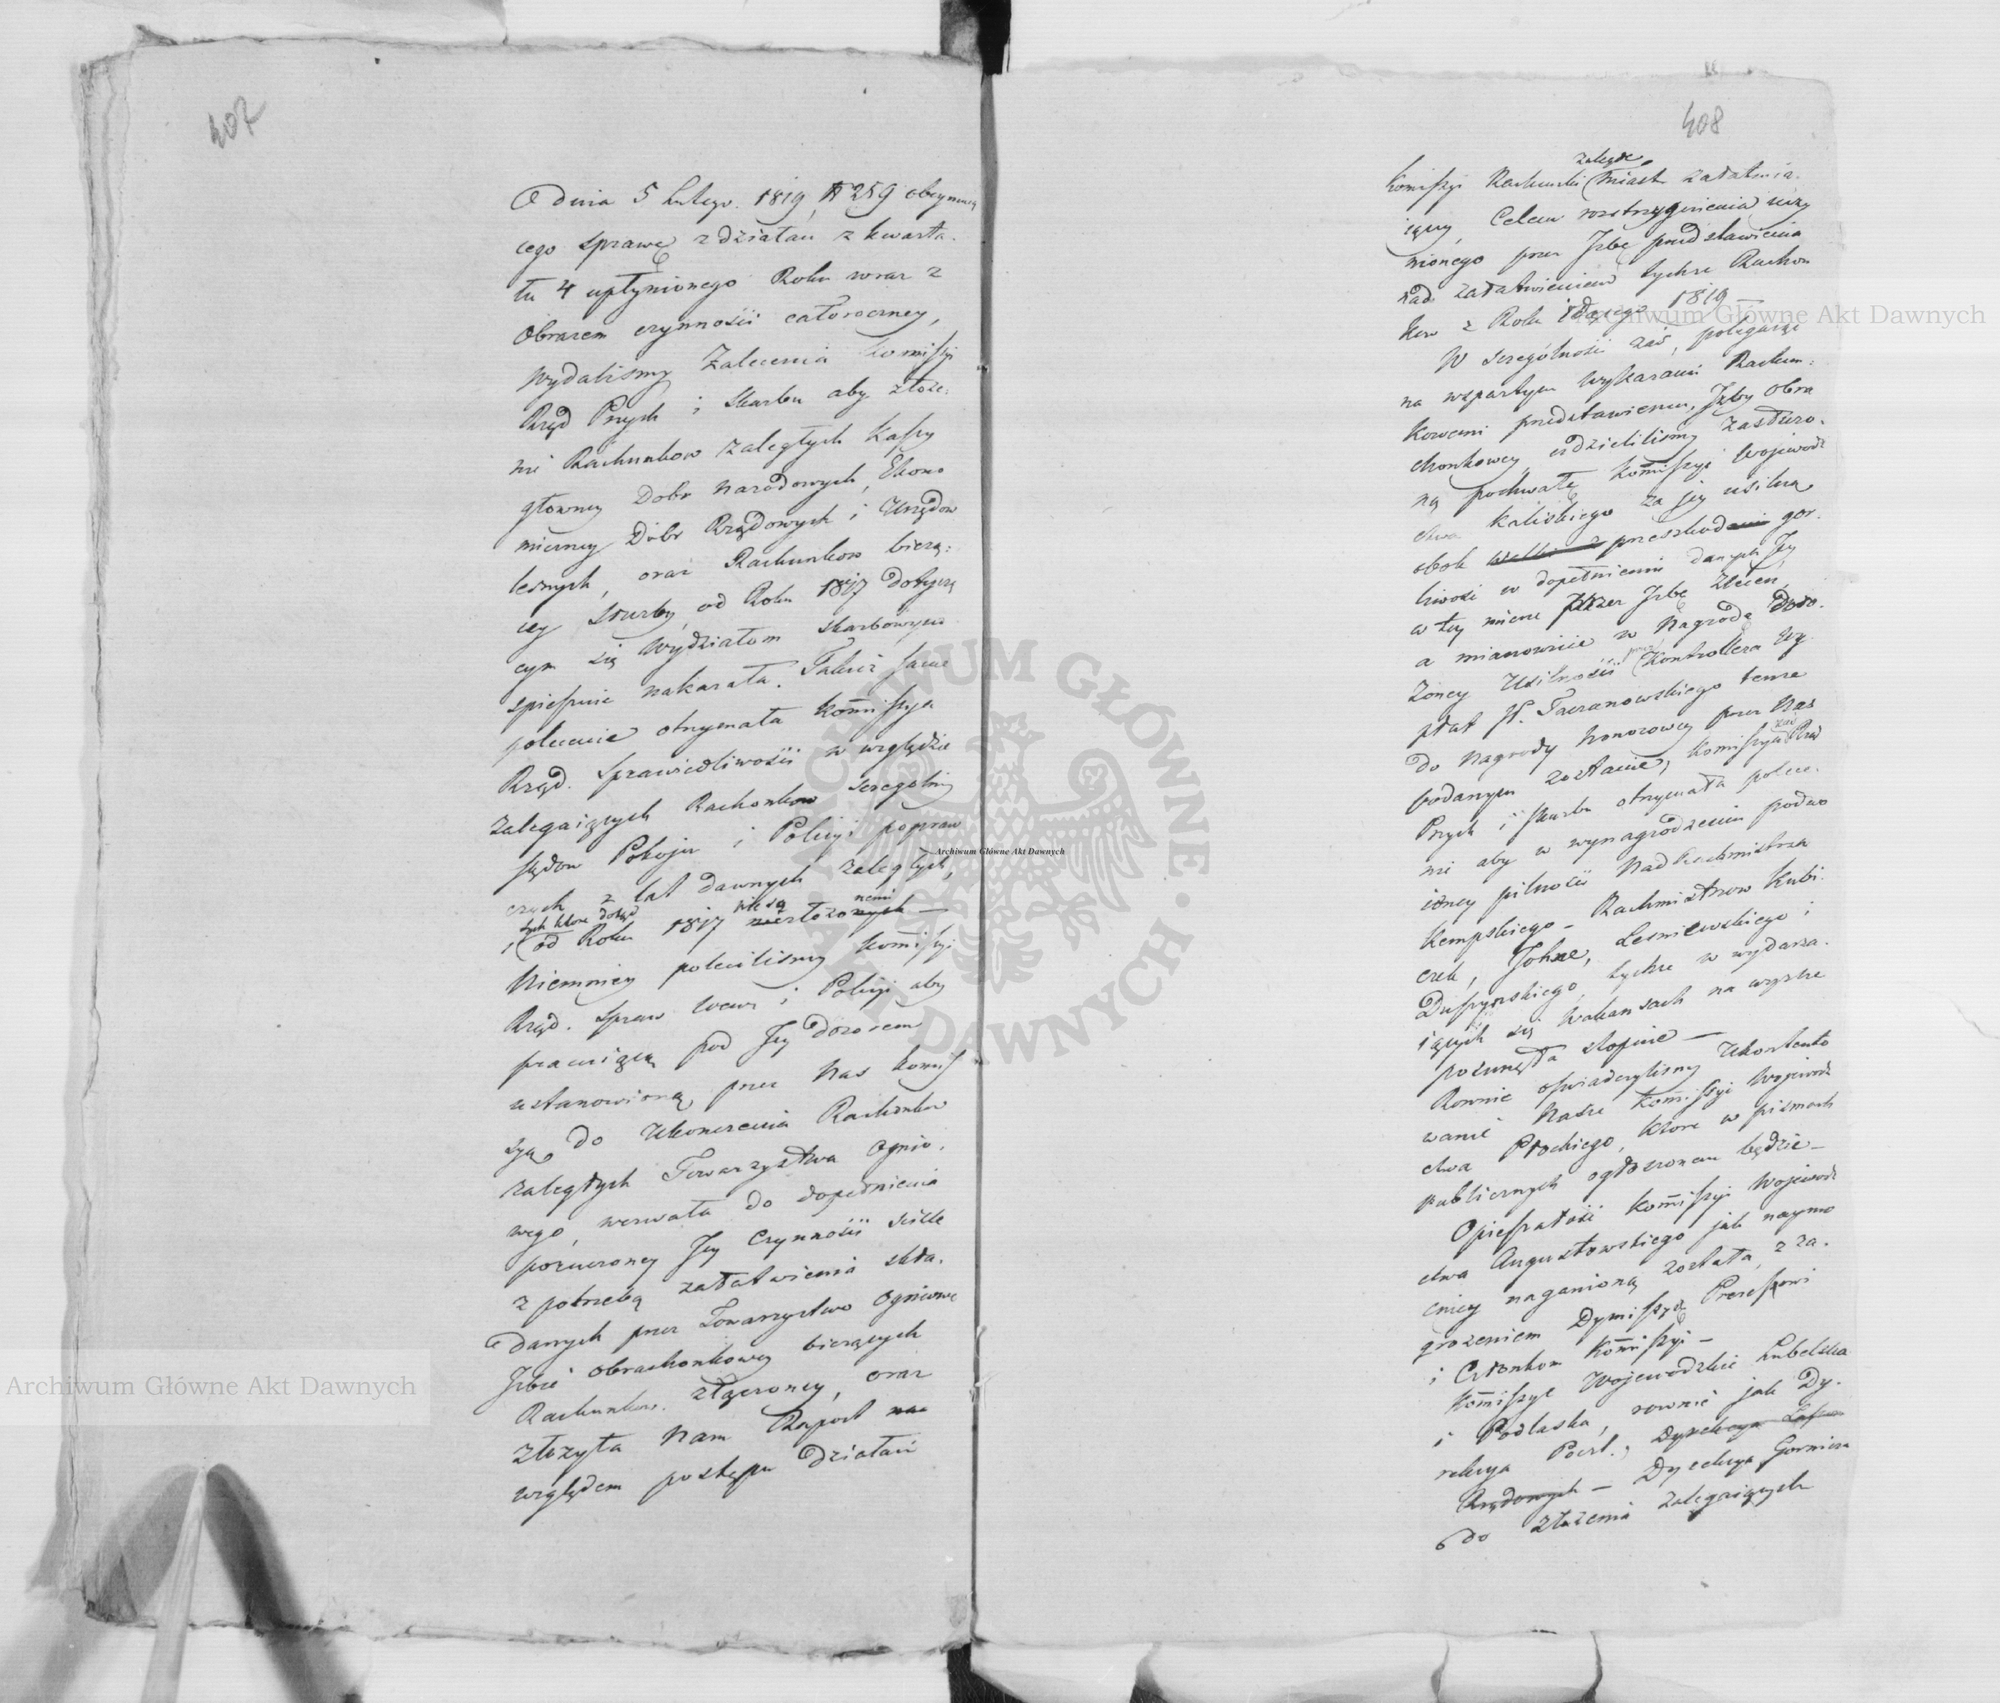 407
O dnia 5 Lutego. 1819, N 259 obeymuią
cego sprawę z działań z kwarta-
łu 4 upłynionego Roku wraz z
Obrazem czynności całoroczney,
wydaliśmy Zalecenia Kommissyi
Rząd Przych i Skarbu aby złoże-
nie Rachunkow zaległych Kassy
głowney Dobr Narodowych, Ekono
miczney Dóbr Rządowych i Urzędow
leśnych, oraz Rachunkow bieżą-
cey służby, od Roku 1817 dotyczą
cym się Wydziałom Skarbowym
spiesznie nakazała. Takież same
polecenie otrzymała Kommissya
Rząd. Sprawiedliwości w względzie
zalegaiących Rachonkow szczególniey
Sądow Pokoju i Policyi popraw
czych z lat dawnych zaległych,
tych ktore dotąd nie są niemi
i od Roku 1817 niezłożonych —
Niemniey poleciliśmy Kommissyi
Rząd. Spraw Wewn i Policyi aby
pracuiącą pod Jey dozorem
ustanowioną przez Nas Kommis
syą do Ukonczenia Rachonkow
zaległych Towarzystwa Ognio-
wego, wezwała do dopełnienia
poruczoney Jey Czynności ściśle
z potrzebą załatwienia skła-
danych przez Towarzystwo Ogniowe
Izbie Obrachonkowey bieżących
Rachunkow złączoney, oraz
złożyła Nam Raport na
względem postępu działań
408
zaległe
Kommissyi Rachunki Miast załatwia-
iącey, Celem rozstrzygnienia uczy
nionego przez Izbę przedstawienia
nad załatwieniem tychże Rachon
kow z Roku idącego 1819 —
W szczególności zaś, polegaiąc
na wspartym Wykazami Rachun-
kowemi przedstawieniu, Izby Obra
chonkowey udzieliliśmy zasłużo-
ną pochwałę Kommissyi Wojewodz
twa Kaliskiego za jey usilną
obok przeszkod gor-
liwość w dopełnieniu danych Jey
w tey mierze przez Izbę Zleceń,
a mianowicie w Nagrodę Doło-
żoney Usilności przez Kontrollera Wy
dział P. Taczanowskiego tenże
do Nagrody honorowey przez Nas
podanym zostanie, Kommissya zaś Rząd
Przych i Skarbu otrzymała polece-
nie aby w wynagrodzeniu podwo
ioney pilności Nad Rachmistrza
Kempskiego — Rachmistrzow Kubi-
czek, Tohne, Lesniewskiego i
Duszynskiego, tychże w wydarza-
iących się Wakansach na wyższe
posunęła stopnie —
Rownie oświadczyliśmy Ukontento
wanie Nasze Kommissyi Wojewodz
twa Płockiego, ktore w pismach
publicznych ogłoszonem będzie —
Opieszałość Kommissyi Wojewodz
twa Augustowskiego jak naymo
cniey naganioną została, z za-
grożeniem Dymissyą Prezessowi
i Członkom Kommissyi —
Kommissye Wojewodzkie Lubelska
i Podlaska, rownie jak Dy-
rekcya Poczt., Dyrekcya
Rządowych — Dyrekcya Gornicza
do złożenia zalegaiących
Archiwum Główne Akt Dawnych
Archiwum Główne Akt Dawnych
Archiwum Główne Akt Dawnych
ARCHIWUM GŁÓWNE · AKT DAWNYCH ·